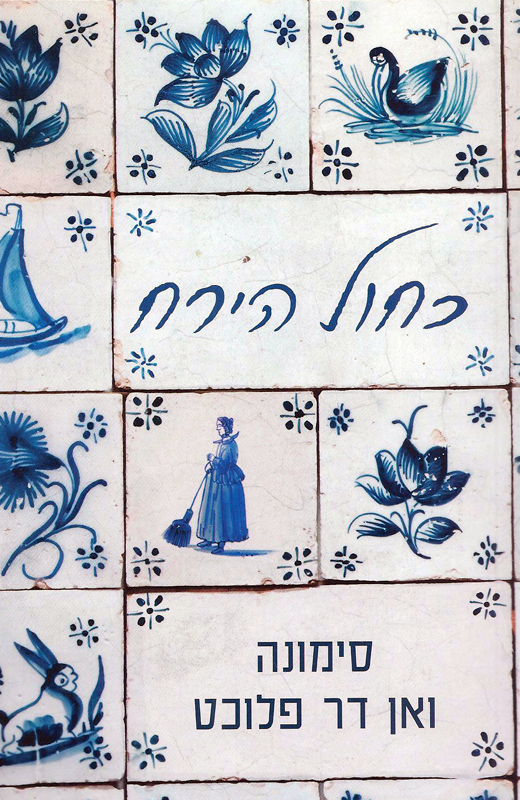 כחול הירח
סימונה
ואן דר פלוכט